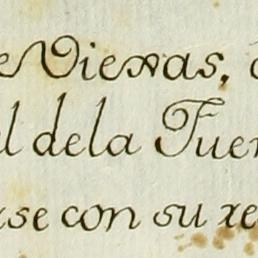 e Viexas,
l dela Fuen
rse con su re